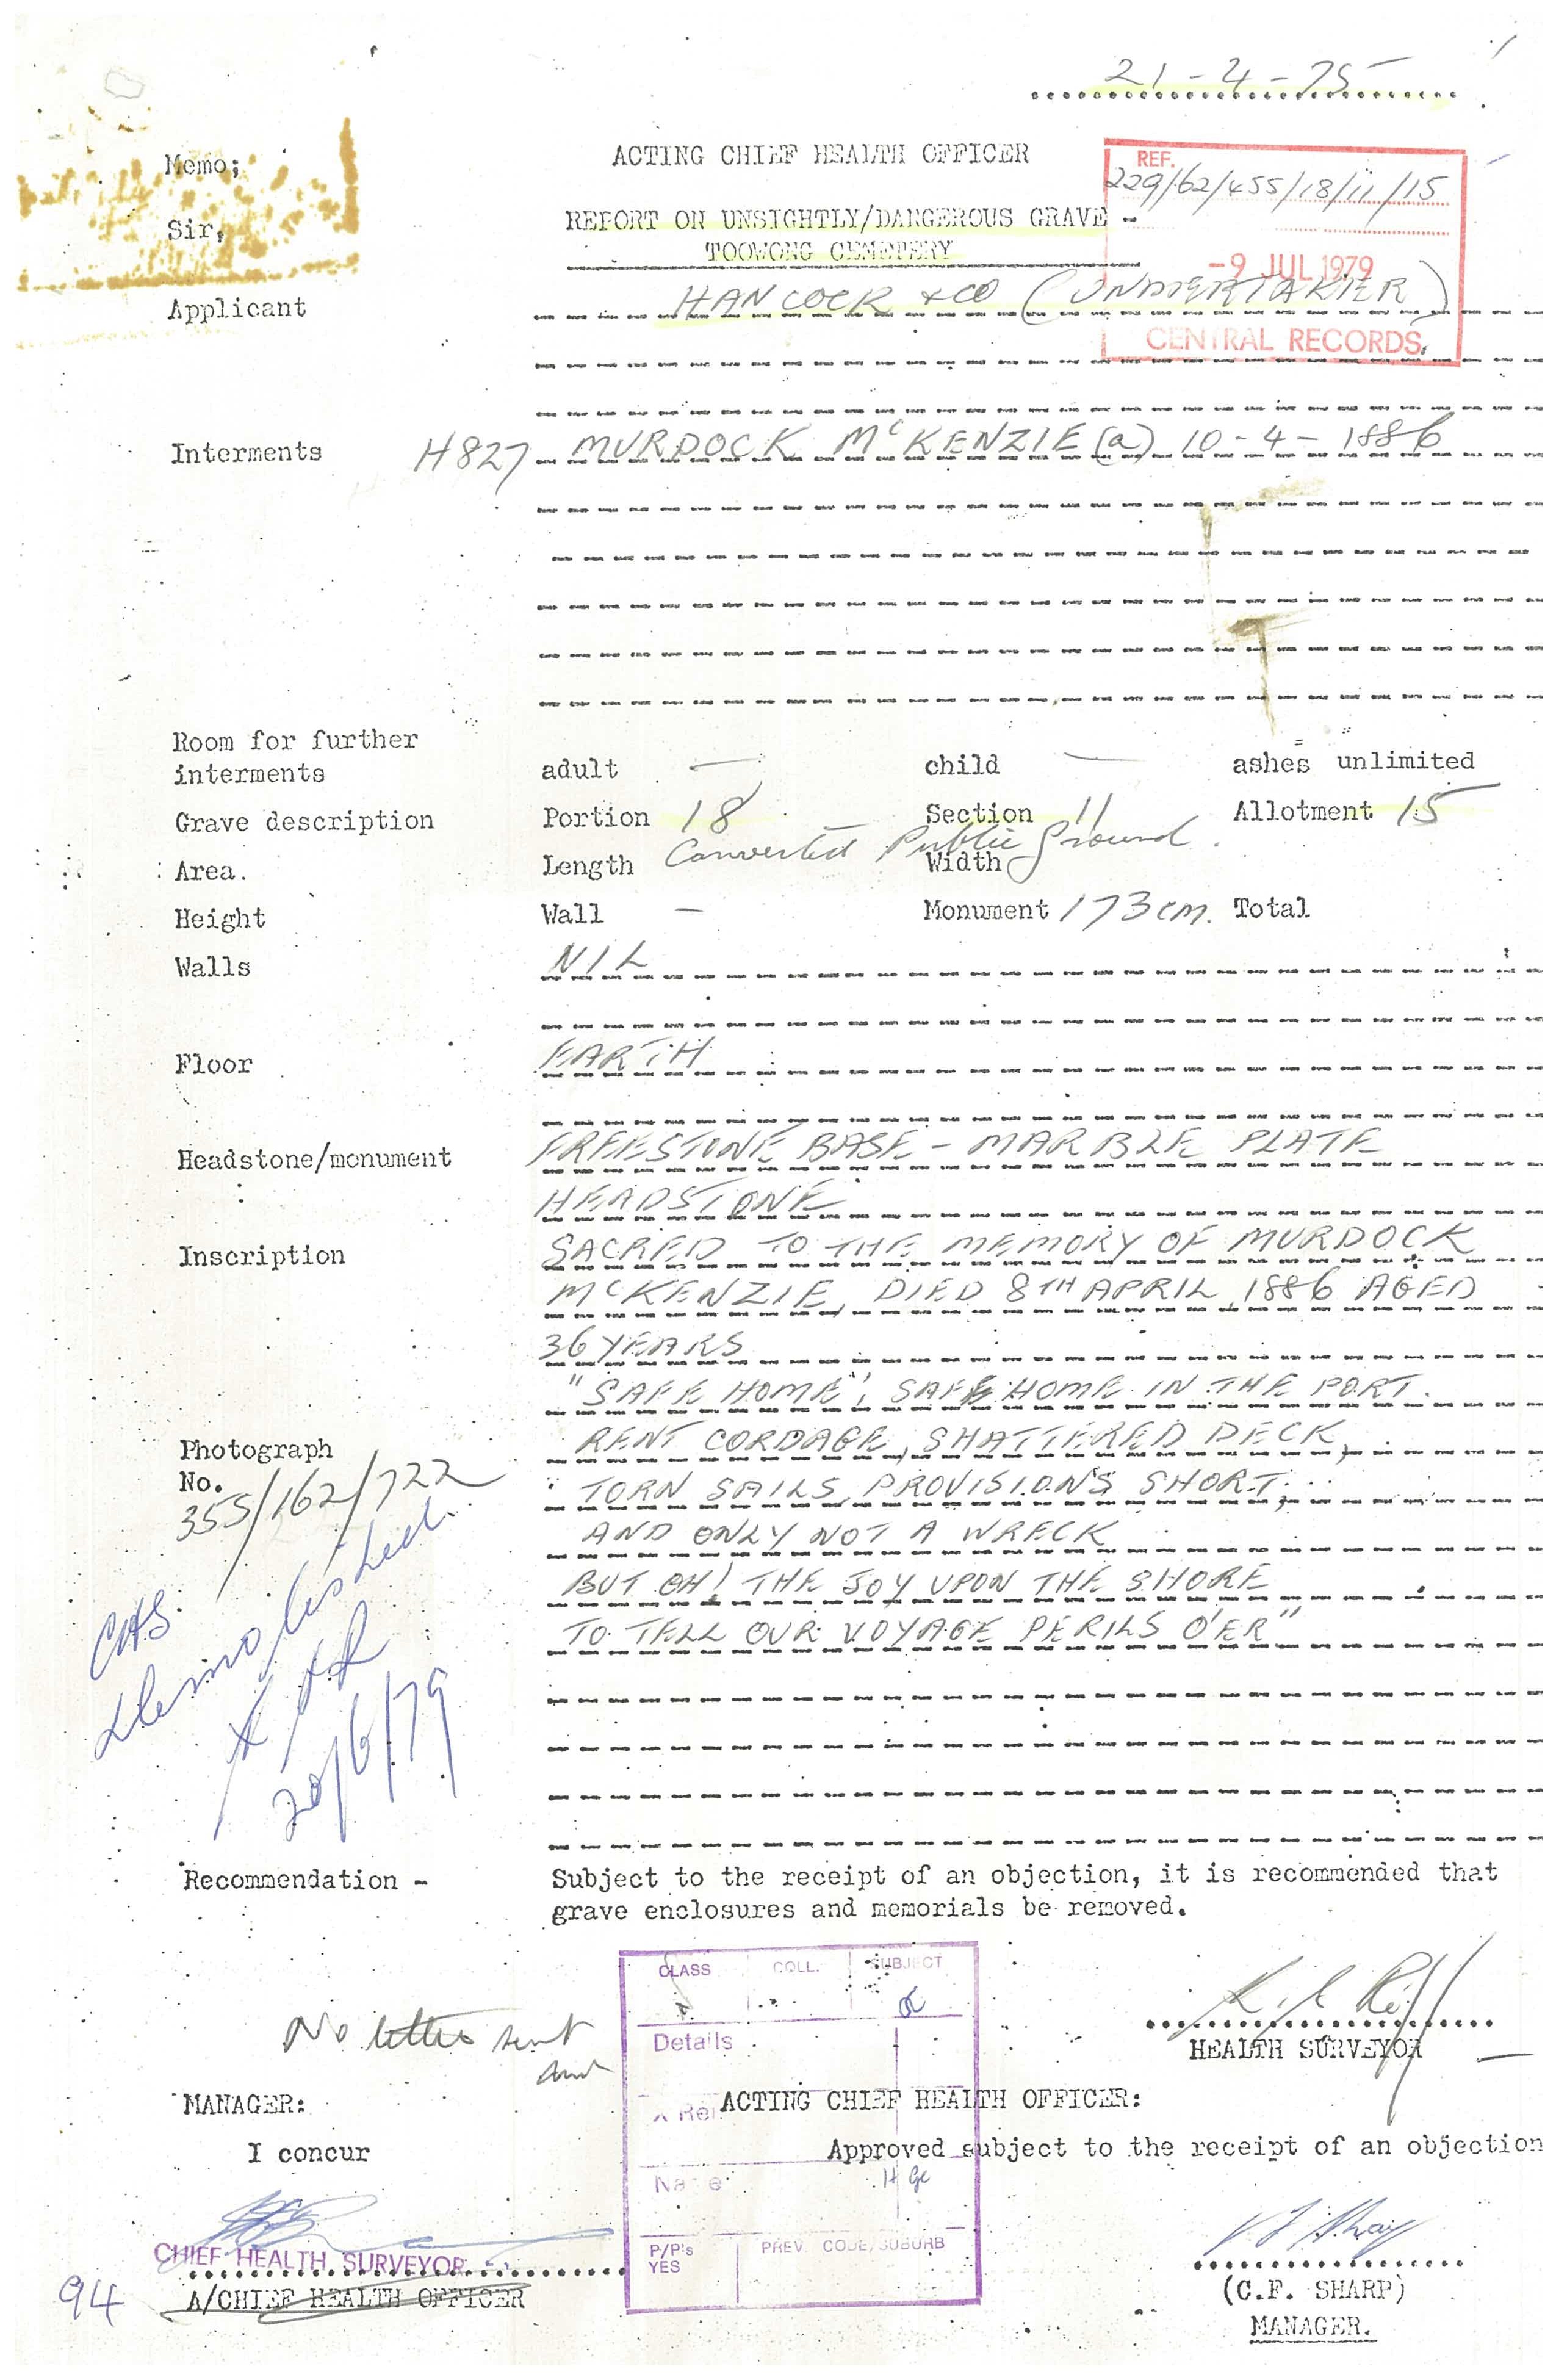 21-4-75
Memo;
ACTING CHIEF HEALTH OFFICER
REF.
229/62/455/18/11/15
Sir,
REPORT ON UNSIGHTLY/DANGEROUS GRAVE -
TOOWONG CEMETERY
-9 JUL 1979
Applicant HANCOCK & CO (UNDERTAKER)
CENTRAL RECORDS.
Interments H827 MURDOCK McKENZIE (a) 10-4-1886
Room for further
interments adult — child — ashes unlimited
Grave description Portion 18 Section 11 Allotment 15
Converted Public Ground.
Area. Length Width
Height Wall — Monument 173cm. Total
Walls NIL
Floor EARTH
Headstone/monument FREESTONE BASE - MARBLE PLATE
HEADSTONE
Inscription SACRED TO THE MEMORY OF MURDOCK
McKENZIE, DIED 8TH APRIL, 1886 AGED
36 YEARS
"SAFE HOME", SAFE HOME IN THE PORT.
RENT CORDAGE, SHATTERED DECK,
TORN SAILS, PROVISIONS SHORT,
AND ONLY NOT A WRECK
BUT OH! THE JOY UPON THE SHORE
TO TELL OUR VOYAGE PERILS O'ER"
Photograph
No.
355/162/722
CHS.
Demolished
20/6/79
Recommendation - Subject to the receipt of an objection, it is recommended that
grave enclosures and memorials be removed.
CLASS COLL. SUBJECT
No letter sent
Details
HEALTH SURVEYOR
MANAGER: ACTING CHIEF HEALTH OFFICER:
X Ref
I concur Approved subject to the receipt of an objection
Name
CHIEF HEALTH SURVEYOR
P/P's
YES
PREV. CODE/SUBURB
94 A/CHIEF HEALTH OFFICER
(C.F. SHARP)
MANAGER.